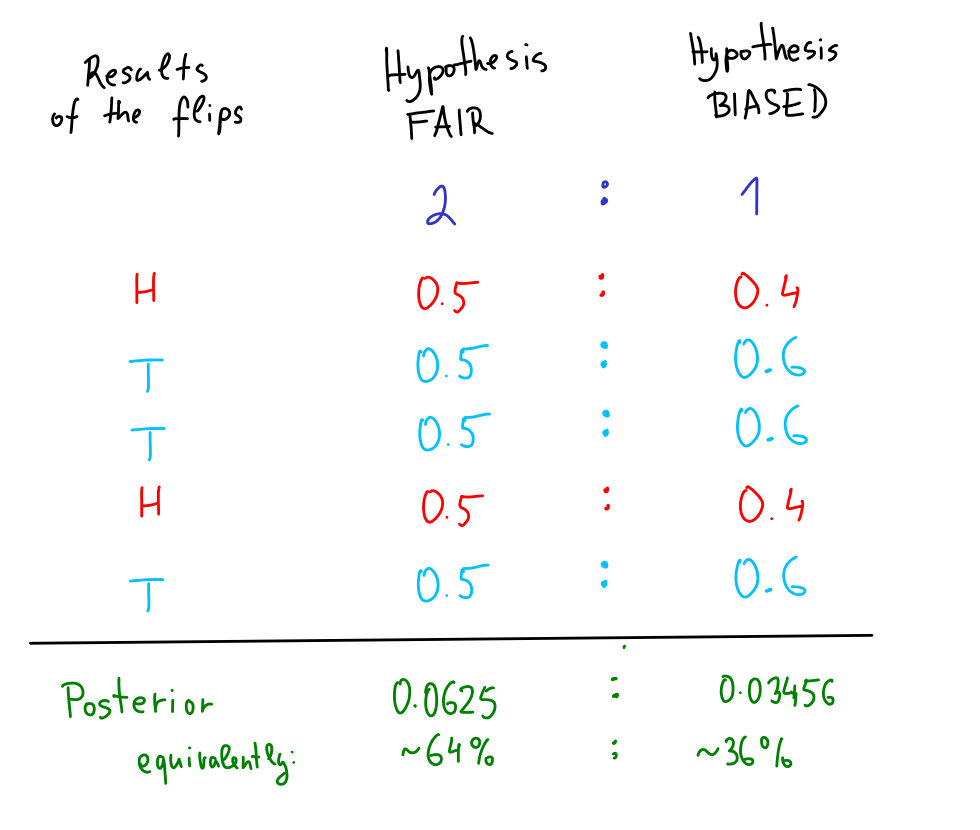 Results of the flips Hypothesis FAIR Hypothesis BIASED
2 : 1
H 0.5 : 0.4
T 0.5 : 0.6
T 0.5 : 0.6
H 0.5 : 0.4
T 0.5 : 0.6
Posterior 0.0625 : 0.03456
equivalently: ~64% : ~36%